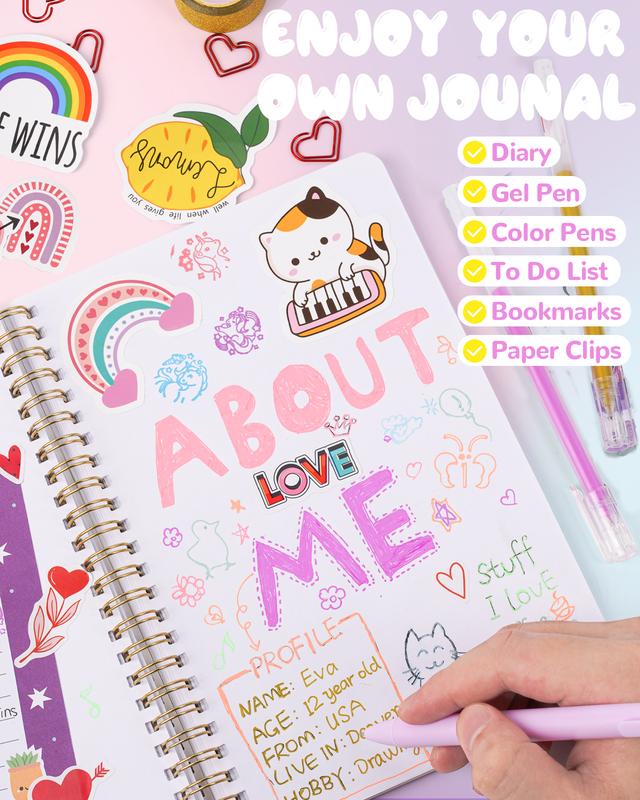 ENJOY YOUR
OWN JOUNAL
Diary
Gel Pen
Color Pens
To Do List
Bookmarks
Paper Clips
WINS
Lemons
well when life gives you
ABOUT
LOVE
ME
Stuff
I LOVE
PROFILE
NAME: Eva
AGE: 12 year old
FROM: USA
LIVE IN: Denver
HOBBY: Drawing